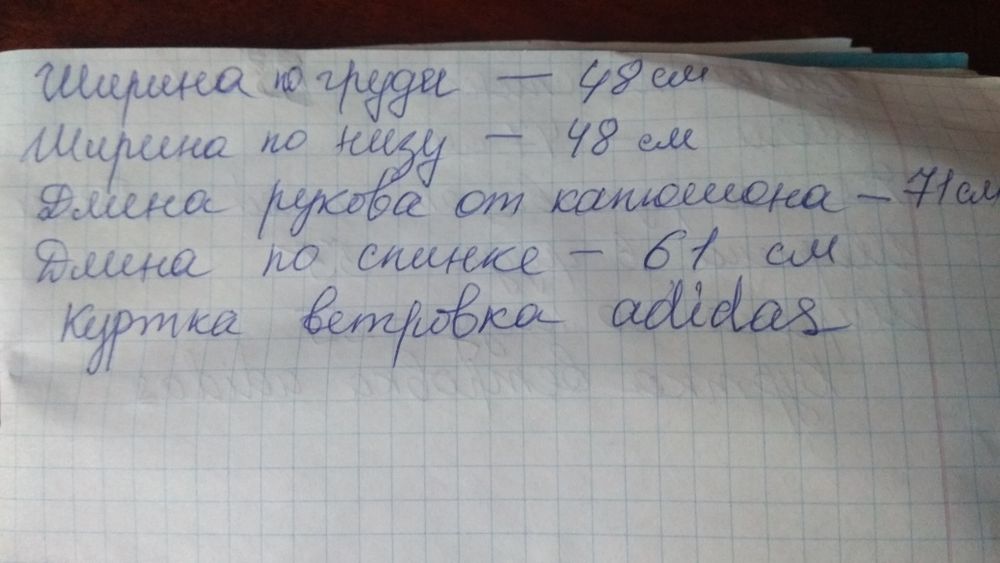 Ширина по груди — 48 см
Ширина по низу — 48 см
Длина рукова от капюшона – 71 см
Длина по спинке – 61 см
Куртка ветровка adidas